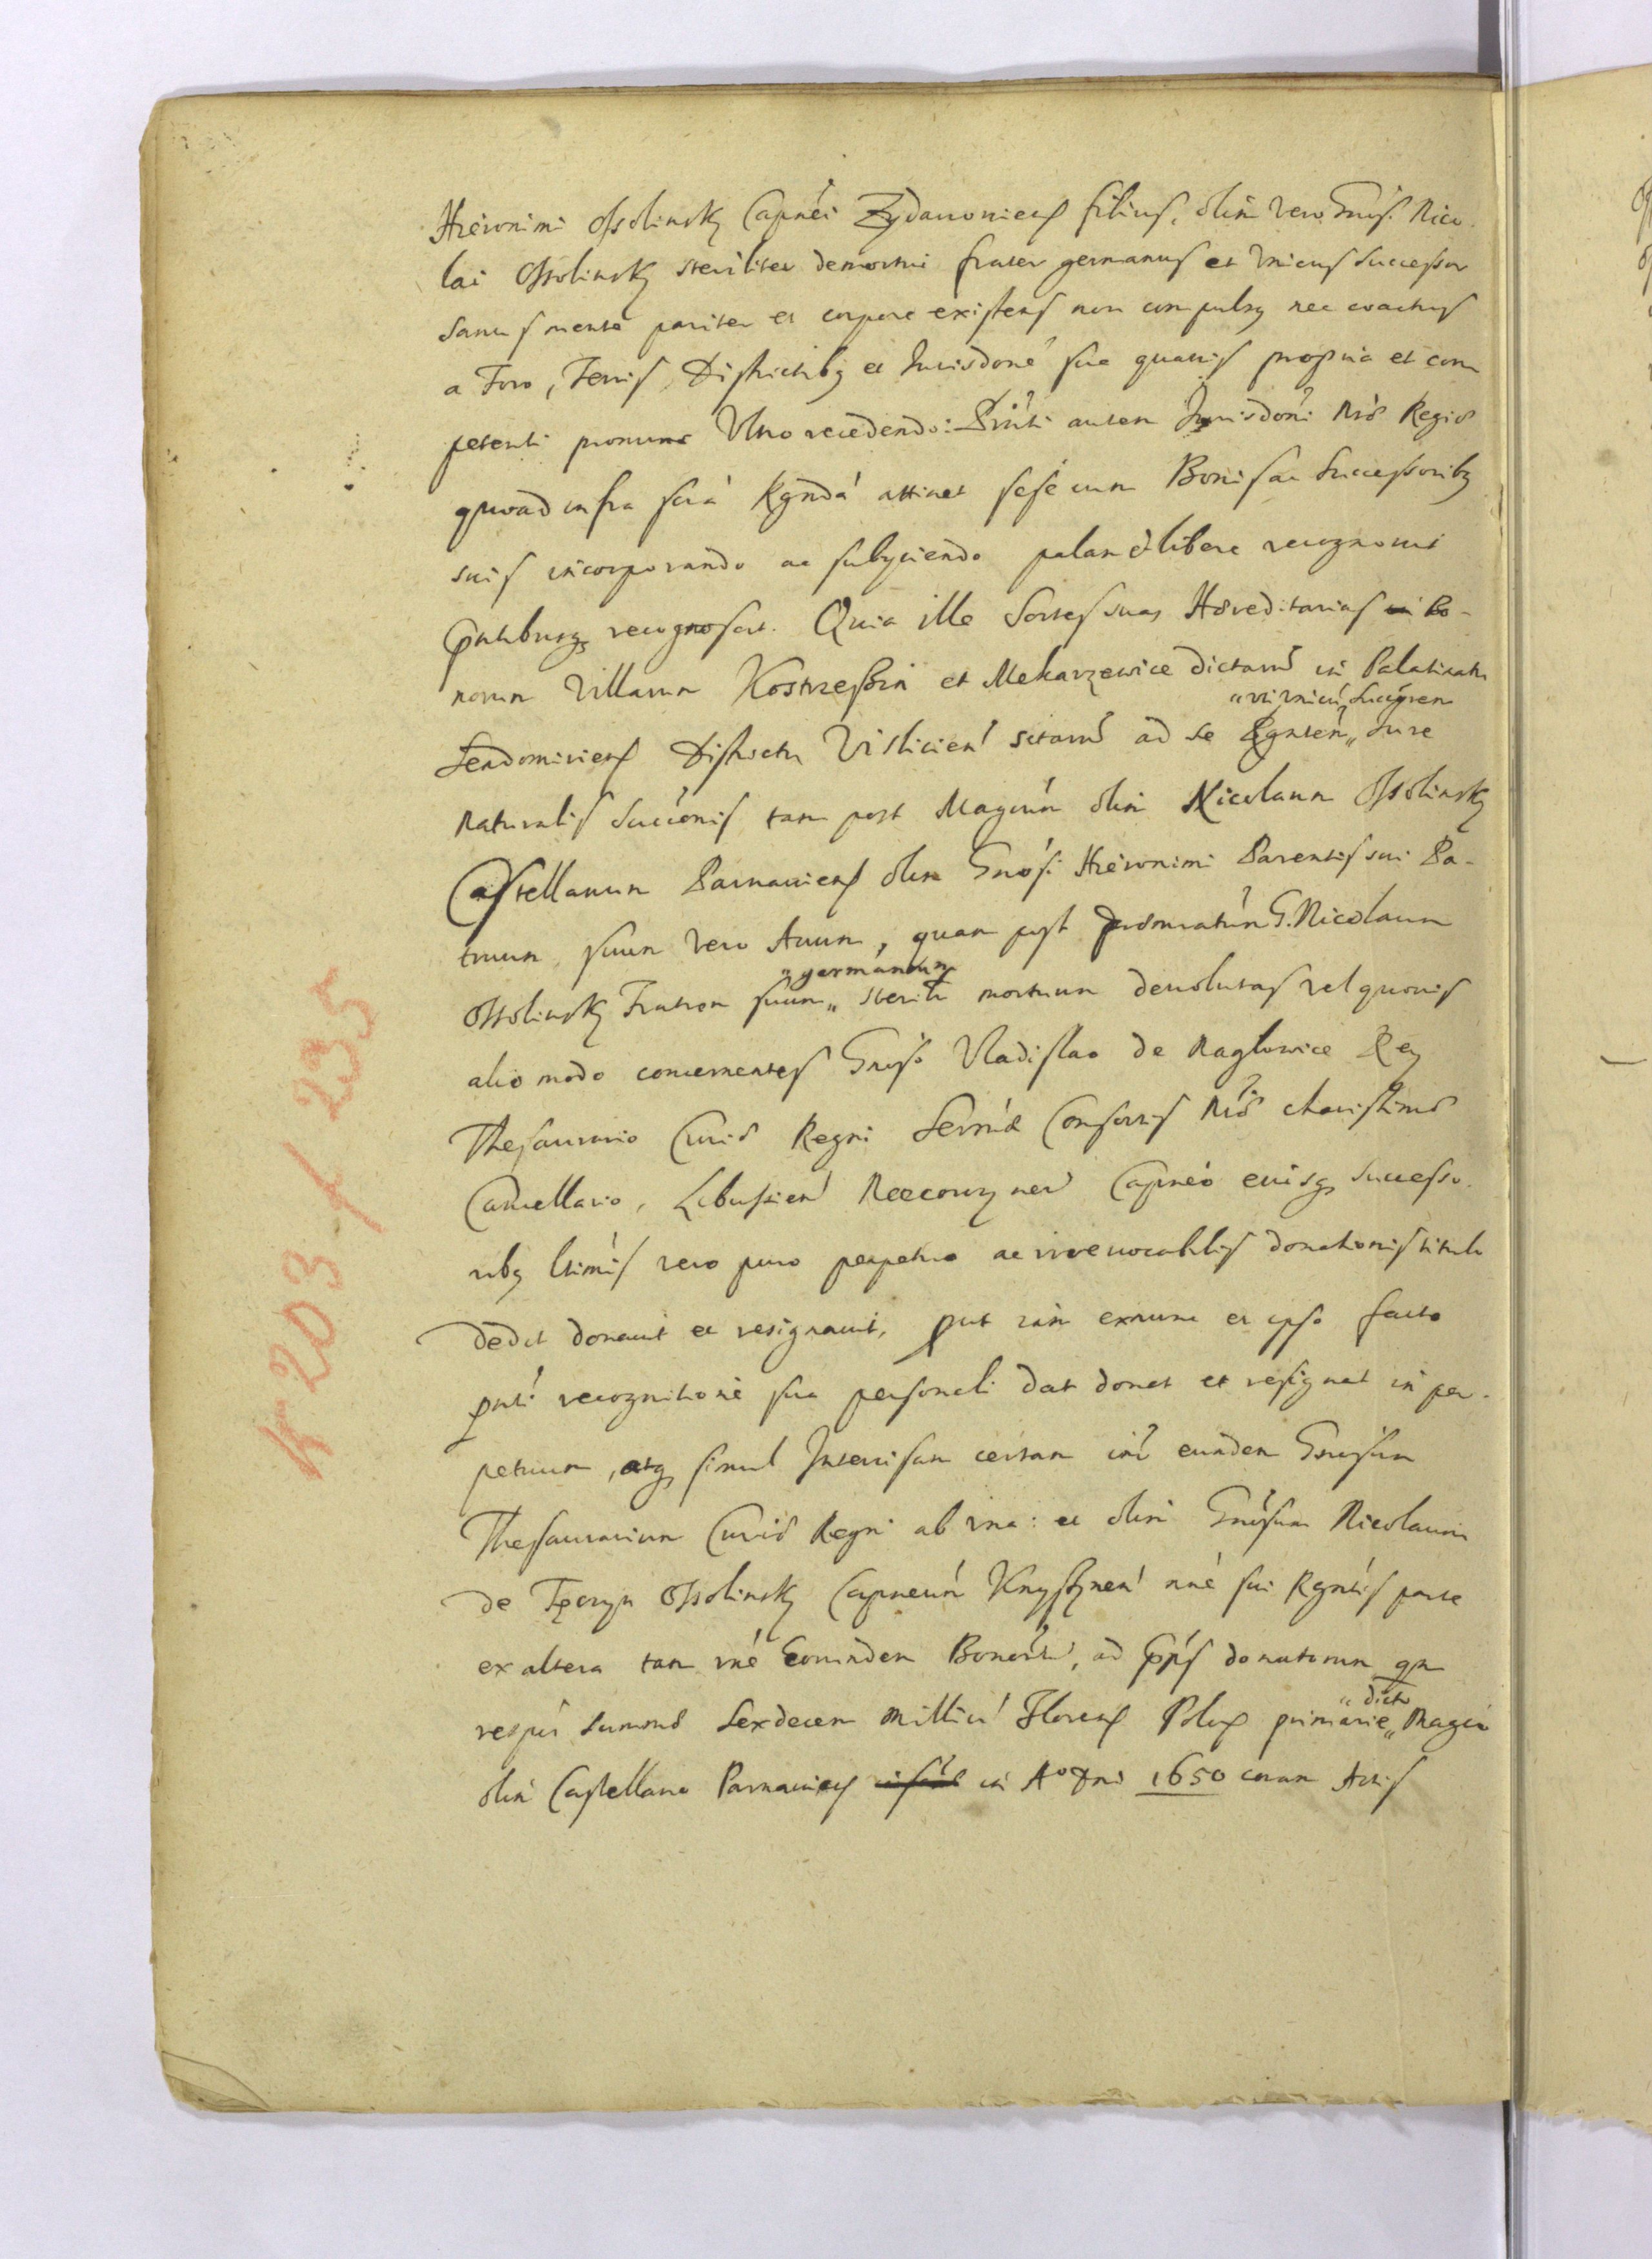 Hieronimi Ossolinsky Capnei Zydaczouien filius, olim vero Gnosi Nico-
lai Ossolinsky steriliter demortui frater germanus et vnicus Successor
Sanus mente pariter et corpore existens non compulsus nec coactus
a Foro, Terris, Districtibq et Iurisdone sua quauis propria et com
petenti pronunc Vltro recedendo: Prnti autem Iurisdoni Nrae Regiae
quoad infra scta Rgnda attinet sese cum Bonis ac Successoribq
suis incorporando ac subyciendo palam et libere recognouit
Pntibusq recognoscit. Quia ille Sortes suas Haereditarias in Bo-
norum Villarum Kostrzeszyn et Mekarzewice dictaru in Palatinatu
"vti vnicu Succorem
Sendomirien Districtu Vislicien sitaru ad se Rgnten" Iure
Naturalis Succonis tam post Magcum olim Nicolaum Ossolinsky
Castellanum Parnauien olim Gnosi Hieronimi Parentis sui Pa-
truum, suum vero Auum, quam post praemoratum G. Nicolaum
"germanum
Ossolinsky Fratrem suum" sterilr mortuum deuolutas vel quouis
alio modo concernentes Gnoso Vladislao de Naglowice Rey
Thesaurario Curiae Regni Sermae Consortis Nrae charissimae
Cancellario, Libuszien Nowomieyscen Capneo eiusq Successo-
ribq ltimis vero puro perpetuo ac irreuocabilis donationis titulo
dedit donauit et resignauit, put iam exnunc et ipso facto
pnti recognitione sua personali dat donat et resignat in per-
petuum, atq simul Intercisam certam int eundem Gnosum
Thesaurarium Curiae Regni ab vna: et olim Gnosum Nicolaum
de Tęczyn Ossolinsky Capneum Knyszynen nne sui Rgntis parte
ex altera tam rne Eorundem Bonoru, ad Ppns donatorum qm
respu Summae Sexdecem Milliu Floren Polon primarie
"dicto
" Magco
olim Castellano Parnauien in Ao Dni 1650 coram Actis
K 203 f 235